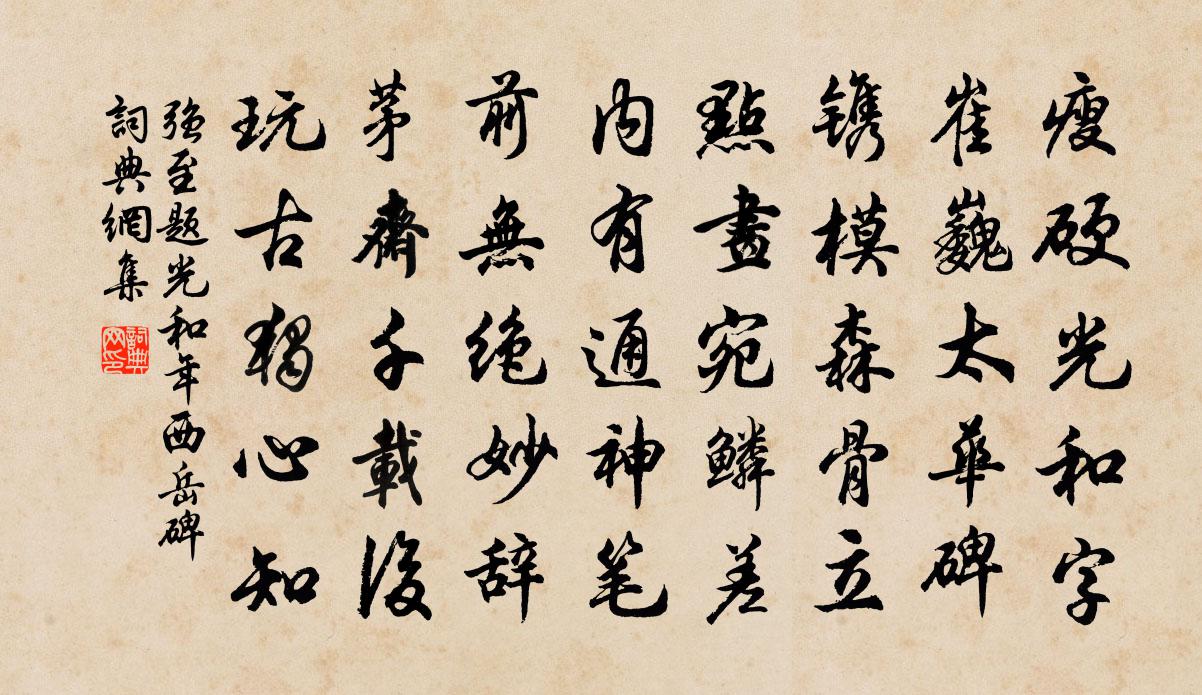 瘦硬光和字
崔巍太華碑
镌模森骨立
點畫宛鱗差
内有通神笔
前無绝妙辞
茅齋千載後
玩古獨心知
强至题光和年西岳碑
詞典網集
詞典网印